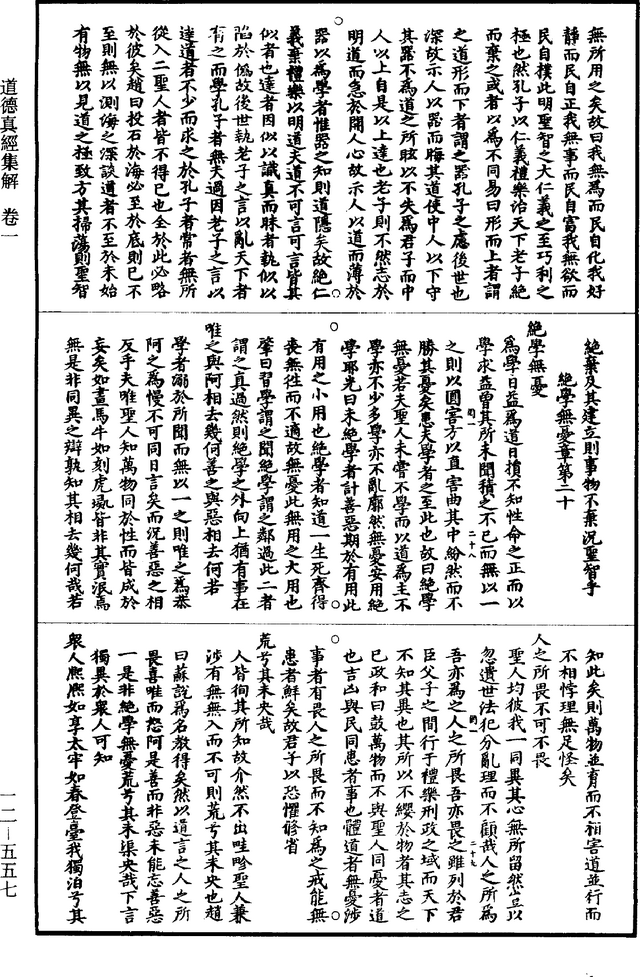 道德真經集解 卷一
一二—五五七
無所用之矣故曰我無為而民自化我好
靜而民自正我無事而民自富我無欲而
民自撲此明聖智之大仁義之至巧利之
極也然孔子以仁義禮樂治天下老子絕
而棄之或者以為不同易曰形而上者謂
之道形而下者謂之器孔子之慮後世也
深故示人以器而晦其道使中人以下守
其器不為道之所眩以不失為君子而中
人以上自是以上達也老子則不然志於
明道而急於開人心故示人以道而薄於
器以為學者惟器之知則道隱矣故絕仁
義棄禮樂以明道夫道不可言可言皆其
似者也達者因似以識真而昧者執似以
陷於偽故後世執老子之言以亂天下者
有之而學孔子者無大過因老子之言以
達道者不少而求之於孔子者常者無所
從入二聖人者皆不得已也全於此必略
於彼矣趙曰投石於海必至於底則已不
至則無以測海之深談道者不至於未始
有物無以見道之極致方其掃蕩則聖智
絕棄及其建立則事物不棄況聖智乎
絕學無憂章第二十
絕學無憂
為學日益為道日損不知性命之正而以
學求益曾其所未聞積之不已而無以一
之則以圓害方以直害曲其中紛然而不
勝其憂矣患夫學者之至此也故曰絕學
無憂若夫聖人未嘗不學而以道為主不
學亦不少多學亦不亂廓然無憂安用絕
學耶光曰未絕學者計善惡期於有用此
有用之小用也絕學者知道一生死齊得
喪無徃而不適故無憂此無用之大用也
肇曰習學謂之聞絕學謂之鄰過此二者
謂之真過然則絕學之外向上猶有事在
唯之與阿相去幾何善之與惡相去何若
學者溺於所聞而無以一之則唯之為恭
阿之為慢不可同日言矣而況善惡之相
反乎夫唯聖人知萬物同於性而皆成於
妄矣如畫馬牛如刻虎彘皆非其實泯焉
無是非同異之辯孰知其相去幾何哉若
知此矣則萬物並育而不相害道並行而
不相悖理無足怪矣
人之所畏不可不畏
聖人均彼我一同異其心無所留然豈以
忽遺世法犯分亂理而不顧哉人之所為
吾亦為之人之所畏吾亦畏之雖列於君
臣父子之間行于禮樂刑政之域而天下
不知其異也其所以不纓於物者其志之
已政和曰鼓萬物而不與聖人同憂者道
也吉凶與民同患者事也體道者無憂涉
事者有畏人之所畏而不知為之戒能無
患者鮮矣故君子以恐懼脩省
荒兮其未央哉
人皆徇其所知故介然不出畦畛聖人兼
涉有無無入而不可則荒兮其未央也趙
曰蘇說為名教得矣然以道言之人之所
畏喜唯而怒阿是善而非惡未能忘善惡
一是非絕學無憂荒兮其未渠央哉下言
獨異於衆人可知
衆人熈熈如享太牢如春登臺我獨泊兮其